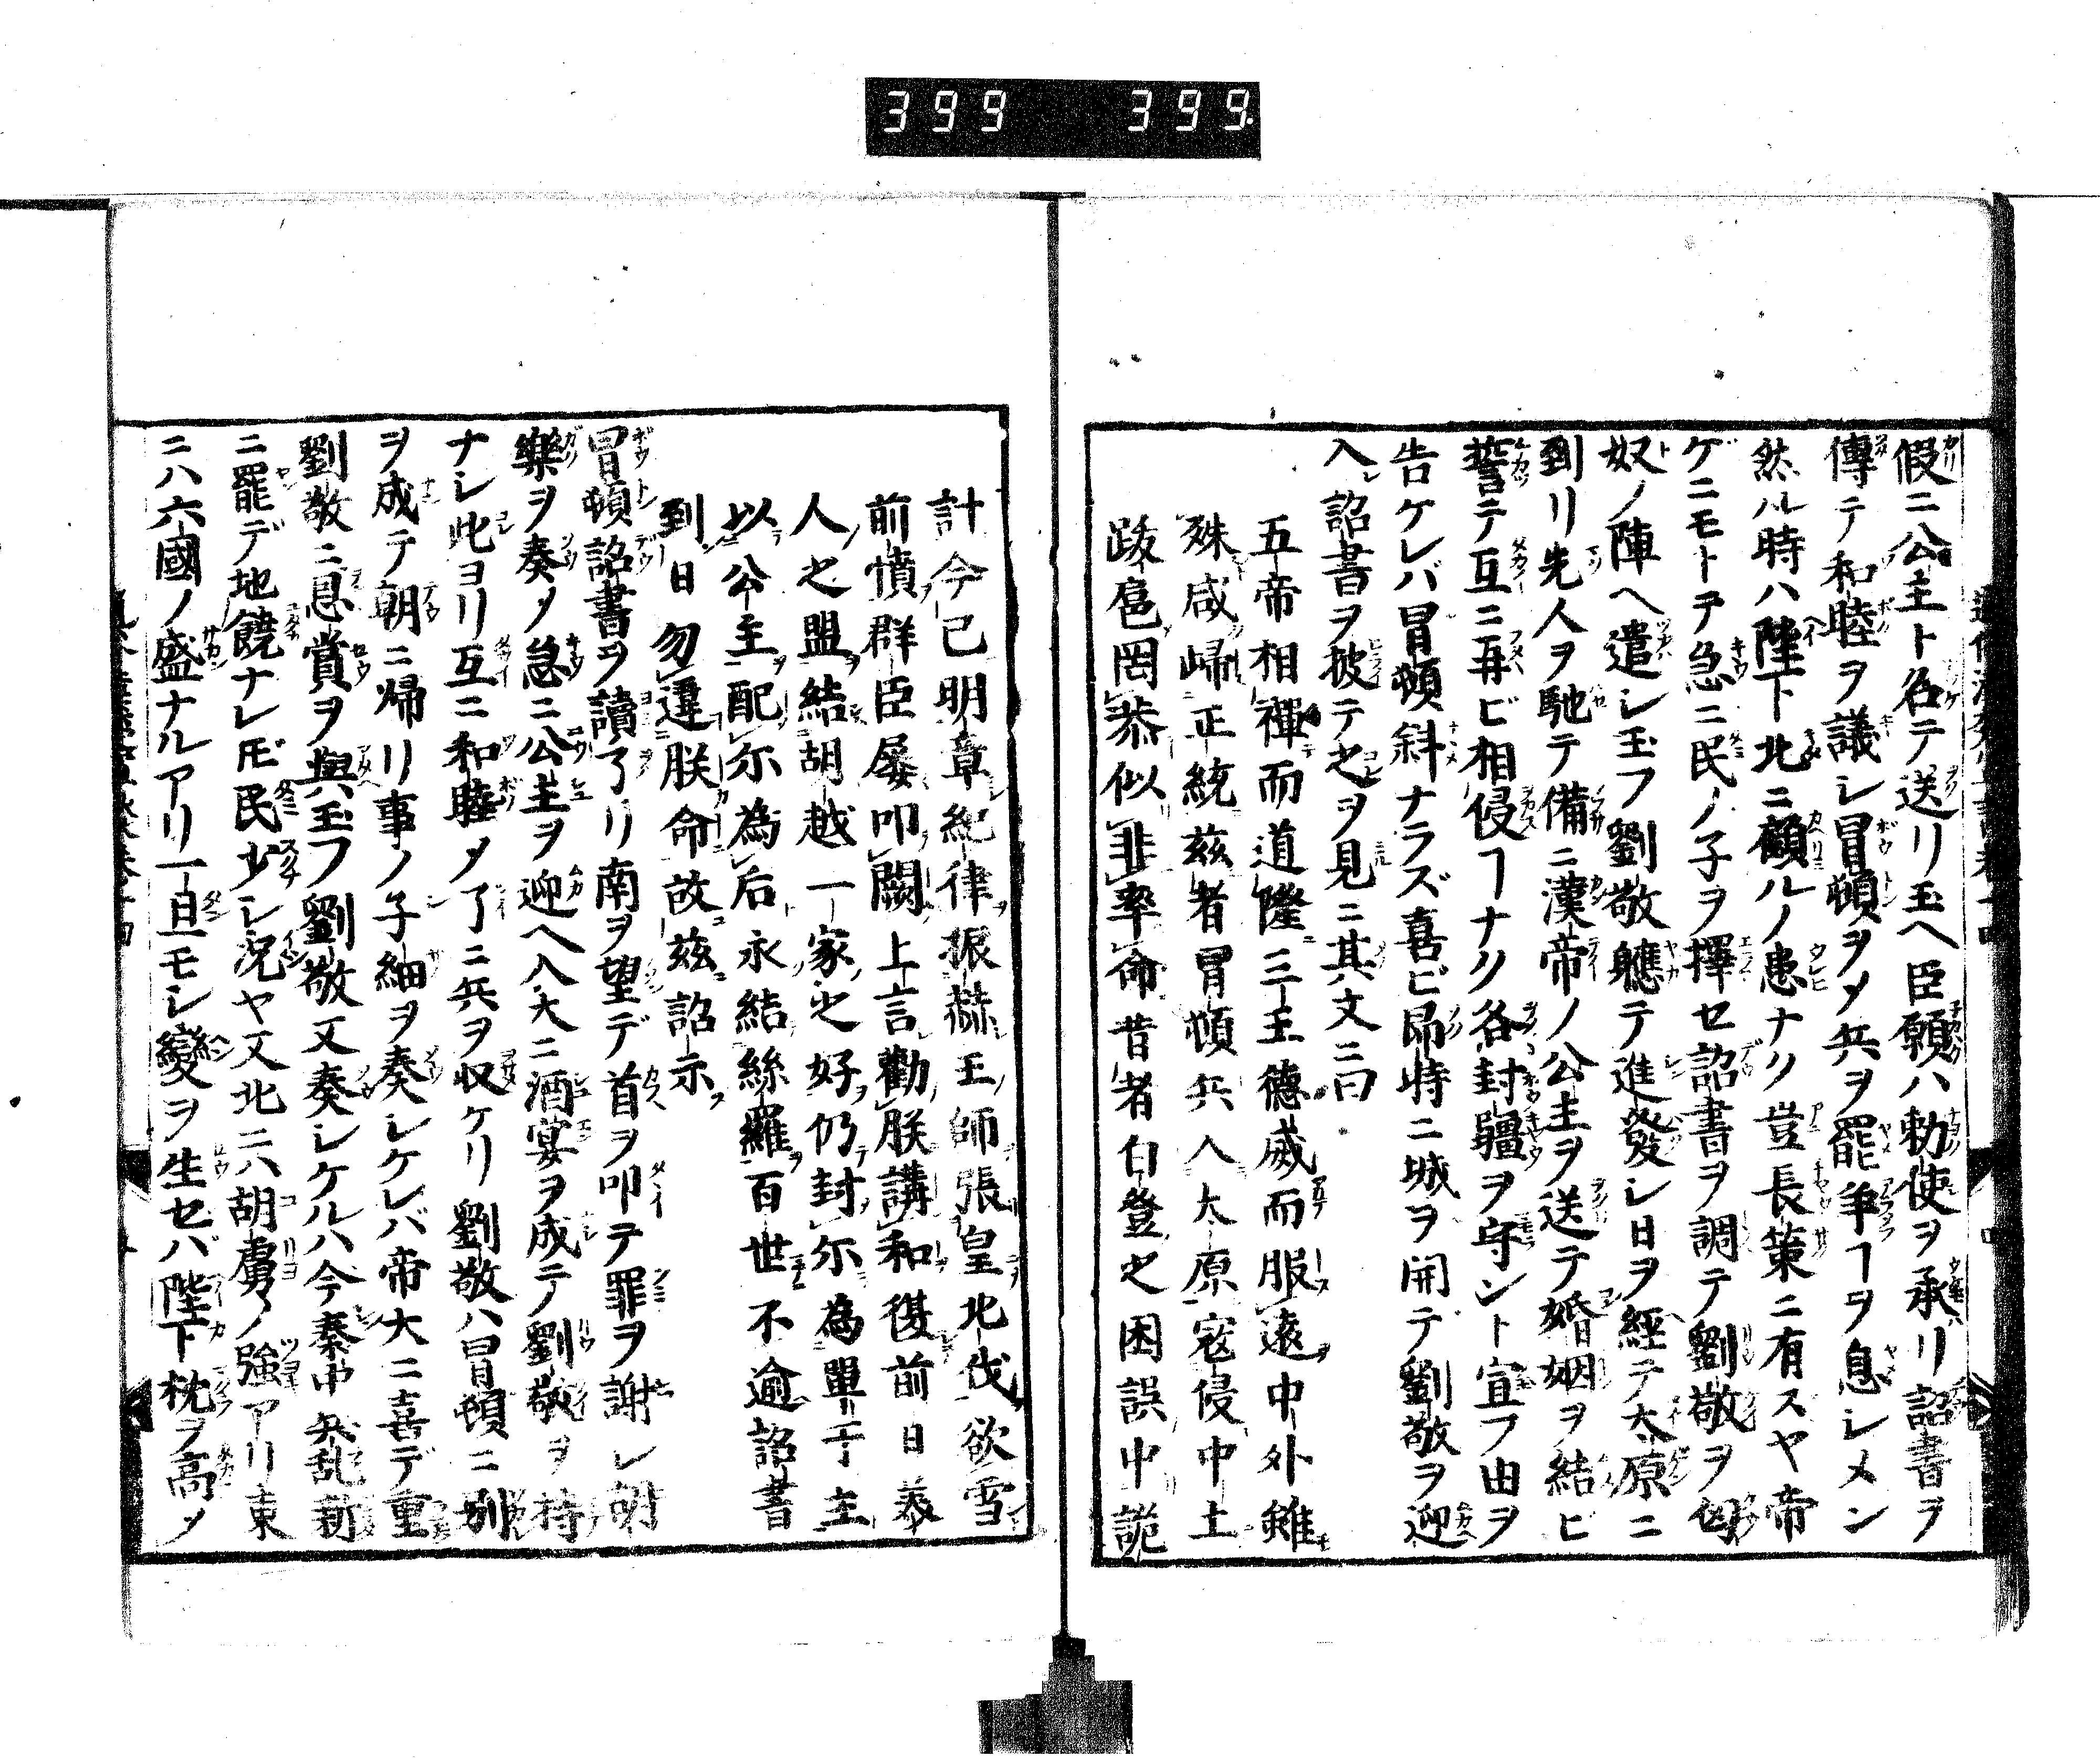 399 399
假ニ公主ト名テ送リ玉ヘ臣願ハ勅使ヲ承リ詔書ヲ
傳テ和睦ヲ議シ冒頓ヲメ兵ヲ罷争ヿヲ息シメン
然ル時ハ陛下北ニ顧ルノ患ナク豈長策ニ有スヤ帝
ゲニモトテ急ニ民ノ子ヲ擇セ詔書ヲ調テ劉敬ヲ匈
奴ノ陣ヘ遣シ玉フ劉敬軈テ進發シ日ヲ經テ太原ニ
到リ先人ヲ馳テ備ニ漢帝ノ公主ヲ送テ婚姻ヲ結ビ
誓テ互ニ再ビ相侵ヿナク各封疆ヲ守ント宣フ由ヲ
告ケレバ冒頓斜ナラズ喜ビ即時ニ城ヲ開テ劉敬ヲ迎
入レ詔書ヲ披テ之ヲ見ニ其文ニ曰
五帝相禪而道隆三王德威而服遠中外雖
殊咸歸正統兹者冒頓兵入太原寇侵中土
跋扈罔恭似非率命昔者白登之困誤中詭
計今已明章紀律振赫王師張皇北伐欲雪
前憤群臣屡叩闕上言勸朕講和復前日
人之盟結胡越一家之好仍封尓為單于主
以公主配尓為后永結絲羅百世不逾詔書
到日勿違朕命故兹詔示
冒頓詔書ヲ讀了リ南ヲ望デ首ヲ叩テ罪ヲ謝シ胡
樂ヲ奏メ急ニ公主ヲ迎ヘ入大ニ酒宴ヲ成テ劉敬ヲ待
ナシ此ヨリ互ニ和睦メ了ニ兵ヲ収ケリ劉敬ハ冒頓ニ別
ヲ成テ朝ニ帰リ事ノ子細ヲ奏シケレバ帝大ニ喜デ重
劉敬ニ恩賞ヲ與玉フ劉敬又奏シケルハ今秦中兵乱新
ニ罷デ地饒ナレ𪜈民少シ况ヤ又北ニハ胡虜ノ強アリ東
ニハ六國ノ盛ナルアリ一旦モシ變ヲ生セバ陛下枕ヲ高メ